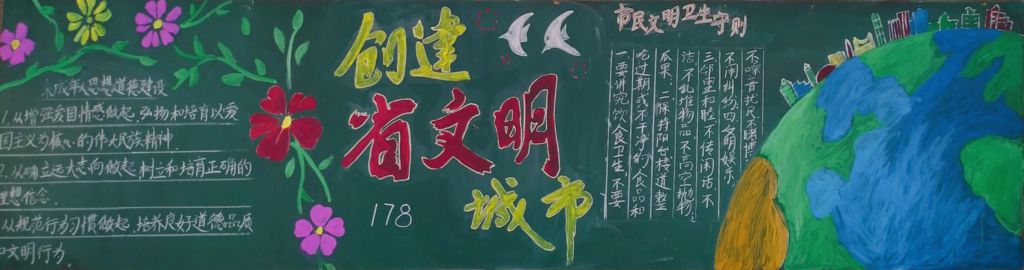 未成年人思想道德建设
1.从增强爱国情感做起,弘扬和培育以爱
国主义为核心的伟大民族精神
2.从确立远大志向做起,树立和培育正确的
理想信念.
从规范行为习惯做起,培养良好道德品质
和文明行为
创建
省文明
城市
178
市民文明卫生守则
一要讲究饮食卫生 不要
吃过期或不干净的食品和
瓜果, 二保持阳台楼道整
洁,不乱堆物品 不高空抛物.
三邻里和睦 不传闲话,不
不闹纠纷.四文明娱乐.